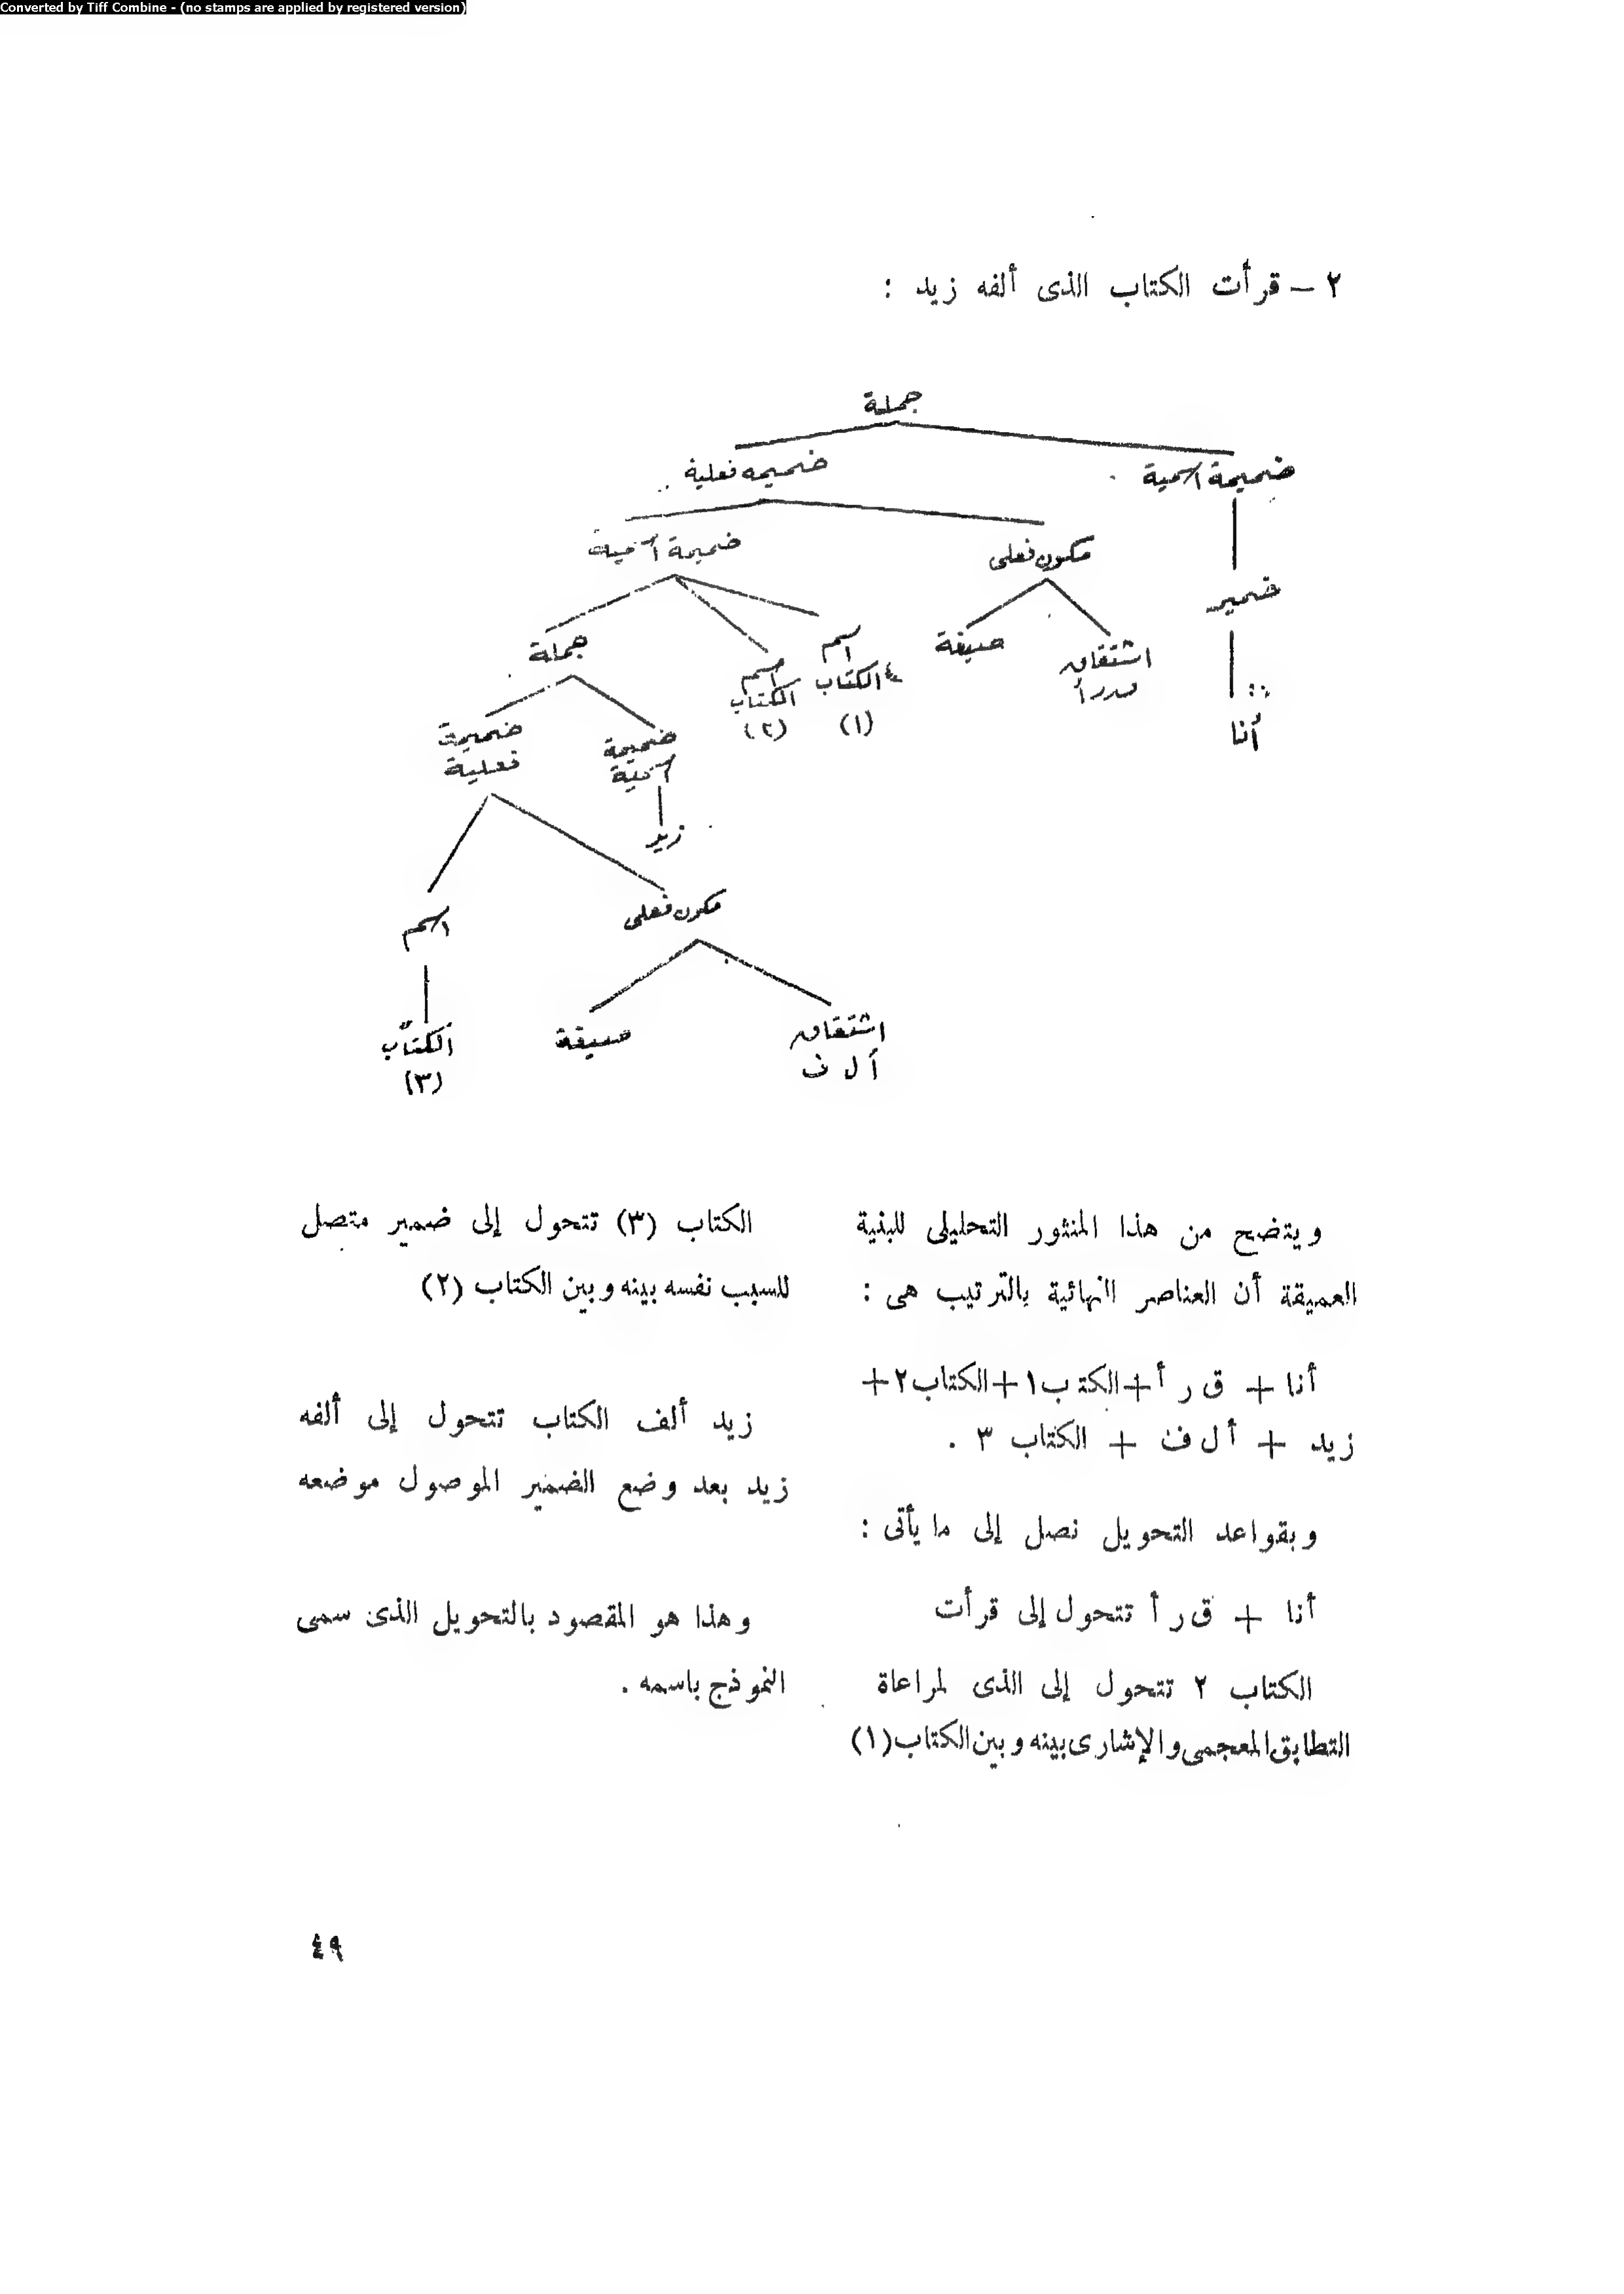 Converted by Tiff Combine - (no stamps are applied by registered version)
٢ – قرأت الكتاب الذى ألفه زيد :
جملة
ضميمة اسمية
ضميمه فعلية
ضمير
أنا
مكون فعلى
ضميمة اسمية
اشتقاق
صيغة
اسم
الكتاب
(١)
اسم
الكتاب
(٢)
جملة
ضميمة
اسمية
زيد
ضميمة
فعلية
مكون فعلى
اسم
اشتقاق
أ ل ف
صيغة
الكتاب
(٣)
ويتضح من هذا المنثور التحليلى للبنية
العميقة أن العناصر النهائية بالترتيب هى :
أنا + ق ر أ + الكتب ١ + الكتاب ٢ +
زيد + أ ل ف + الكتاب ٣ .
وبقواعد التحويل نصل إلى ما يأتى :
أنا + ق ر أ تتحول إلى قرأت
الكتاب ٢ تتحول إلى الذى لمراعاة
التطابق المعجمى والإشارى بينه وبين الكتاب (١)
الكتاب (٣) تتحول إلى ضمير متصل
للسبب نفسه بينه وبين الكتاب (٢)
زيد ألف الكتاب تتحول إلى ألفه
زيد بعد وضع الضمير الموصول موضعه
وهذا هو المقصود بالتحويل الذى سمى
النموذج باسمه .
٤٩